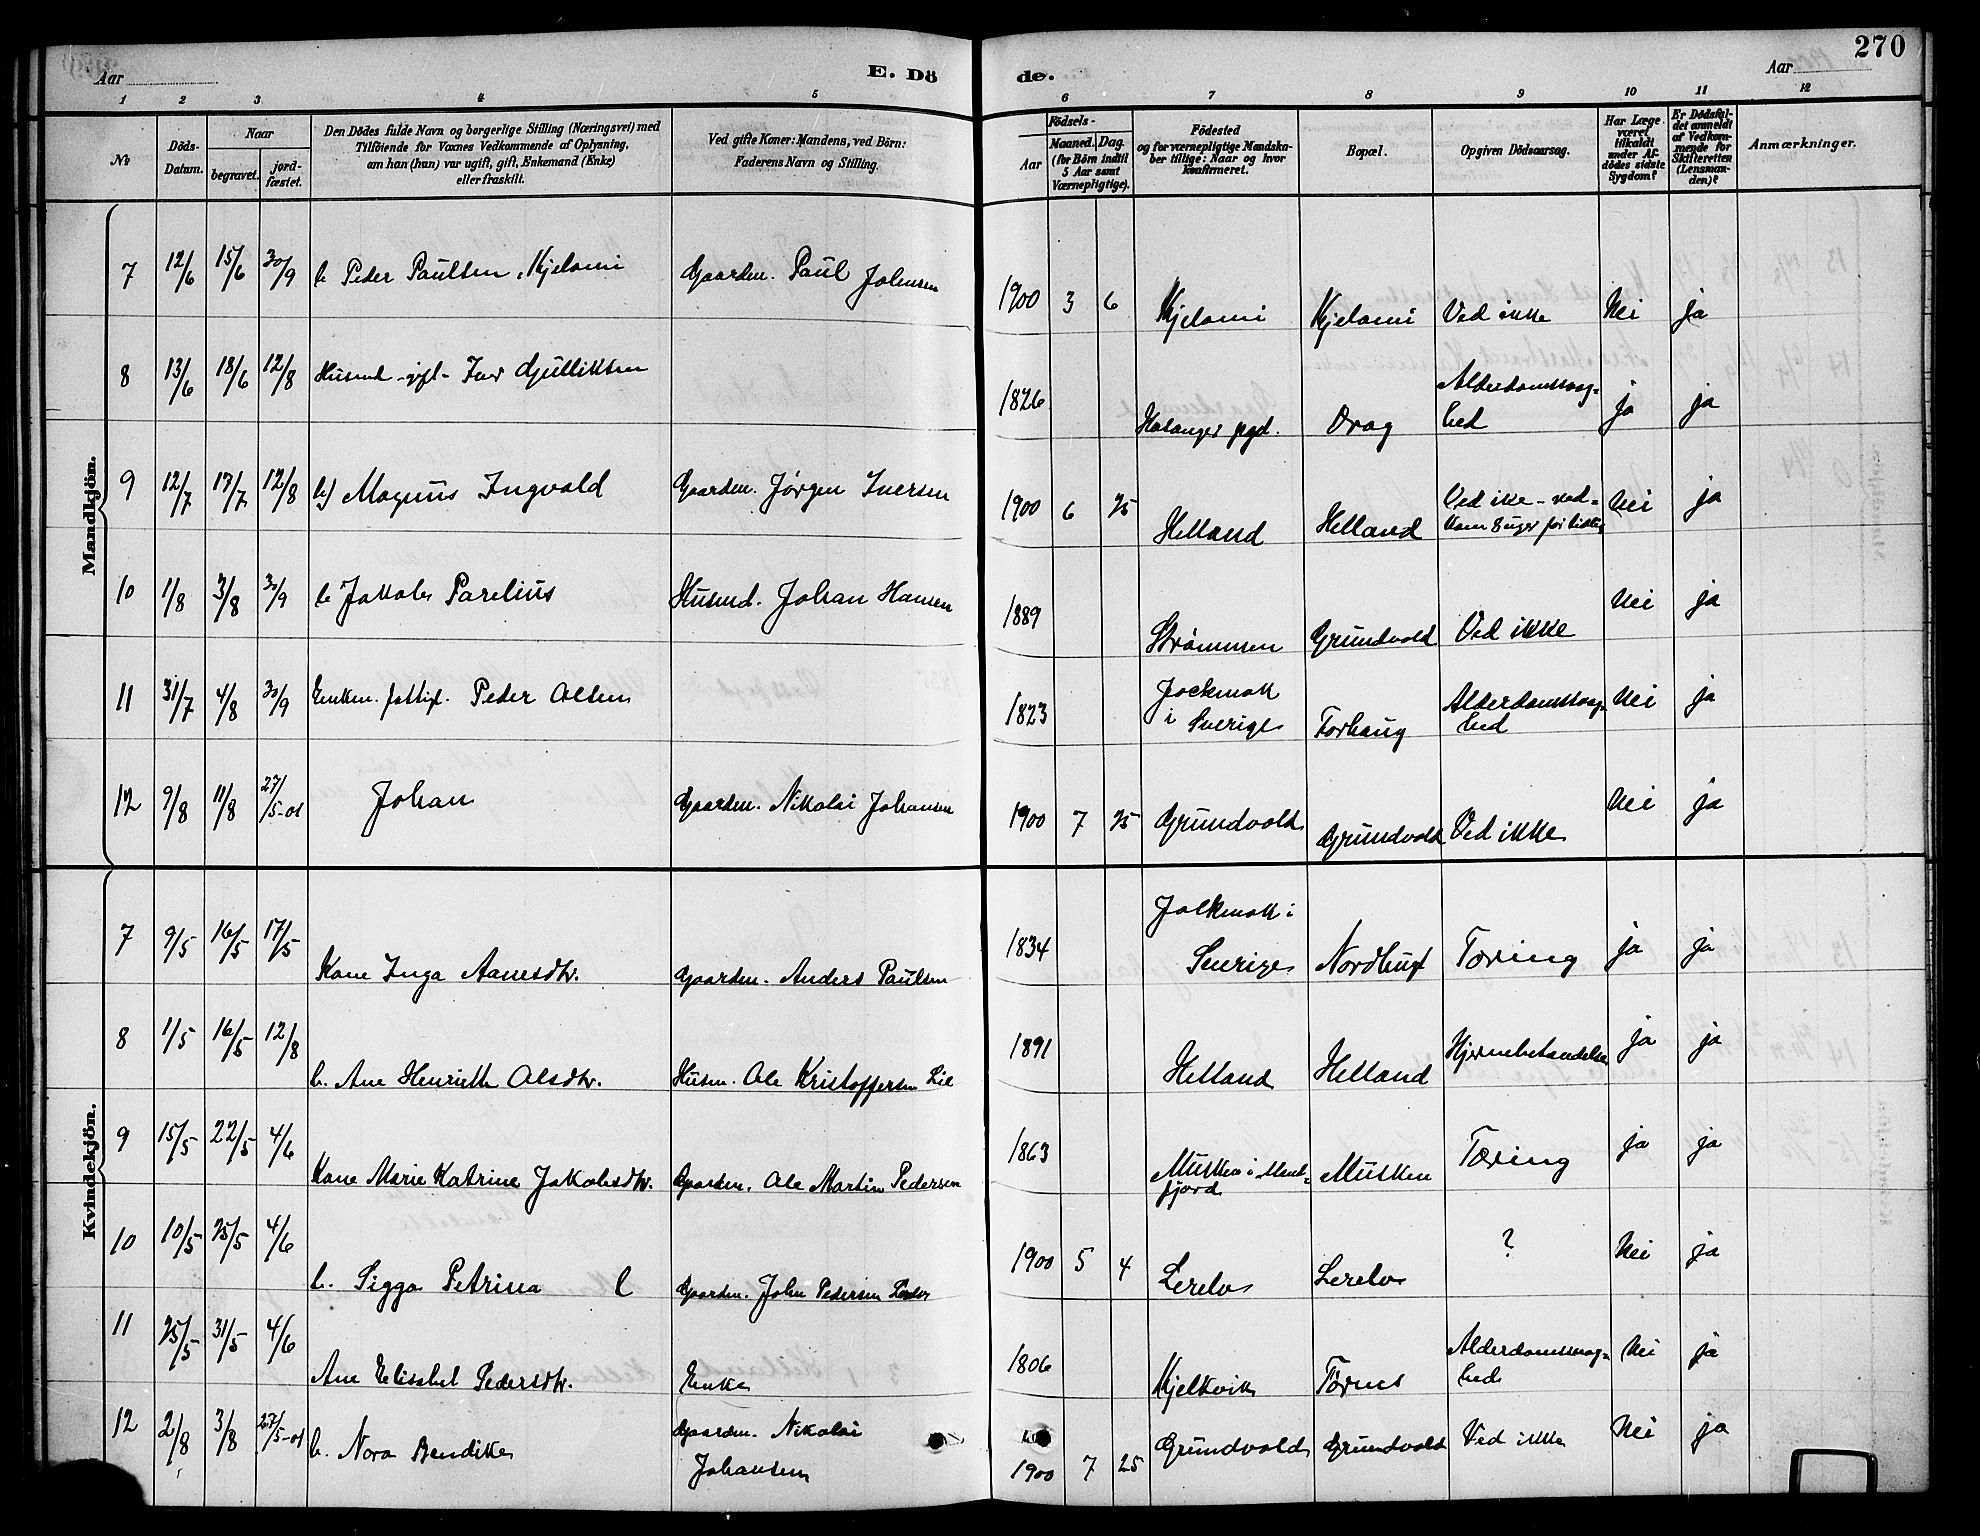 270
Aar
E. Dö
de.
Aar
1 2 3 4 5 6 7 8 9 10 11 12
No
Döds-Datum.
Naar
begravet.
jord-fæstet.
Den Dödes fulde Navn og borgerlige Stilling (Næringsvei) med
Tilföiende for Voxnes Vedkommende af Oplysning,
om han (hun) var ugift, gift, Enkemand (Enke)
eller fraskilt.
Ved gifte Koner: Mandens, ved Börn:
Faderens Navn og Stilling.
Födsels-
Aar
Maaned. Dag.
(for Börn indtil
5 Aar samt
Værnepligtige).
Födested
og for værnepligtige Mandska-
ber tillige: Naar og hvor
konfirmeret.
Bopæl.
Opgiven Dödsaarsag.
Har Læge
været
tilkaldt
under Af-
dödes sidste
Sygdom?
Er Dödsfal-
det anmeldt
af Vedkom-
mende for
Skifteretten
(Lensman-
den)?
Anmærkninger.
Mandkjön.
7 12/6 15/6 30/9 b Peder Paulsen, Kjelomi Gaardm. Paul Johnsen 1900 3 6 Kjelomi Kjelomi Ved ikke Nei ja
8 13/6 18/6 12/8 Husmd - gft - Iver Gulliksen 1826 Drag Alderdomssvag=
hed ja ja
9 12/7 17/7 12/8 Magnus Ingvald Gaardm. Jørgen Iversen 1900 6 25 Helland Helland Ved ikke Nei ja
10 1/8 3/8 30/9 b Jakob Parelius Husmd. Johan Hansen 1889 Strømmen Grundvold Ved ikke Nei ja
11 31/7 4/8 30/9 Enkem. Peder Olsen 1823 Jockmok
i Sverige Forhaug Alderdomssvag=
hed Nei ja
12 9/8 11/8 27/5-01 Johan Gaardm. Nikolai Johansen 1900 7 25 Grundvold Grundvold Ved ikke Nei ja
Kvindekjön.
7 9/5 16/5 17/5 Kone Inga Aanesdtr. Gaardm. Anders Paulsen 1834 Jockmok i
Sverige Tæring ja ja
8 1/5 16/5 12/8 b. Ane Henriette Olsdtr. Husm. Ole Kristoffersen 1891 Helland Helland Hjernebetændelse ja ja
9 15/5 22/5 4/6 Kone Marie Katrine Jakobsdtr. Gaardm. Ole Martin Pedersen 1863 Musken i
fjord Musken Tæring ja ja
10 10/5 25/5 4/6 b. Sigga Petrina Gaardm. John Pedersen 1900 5 4 Lerelv Lerelv ? Nei ja
11 25/5 31/5 4/6 Ane Elisabet Pedersdtr. Enke 1806 Kjelkvik Tørnes Alderdomssvag=
hed Nei ja
12 2/8 3/8 27/5-01 b. Nora Bendikke Gaardm. Nikolai
Johansen 1900 7 25 Grundvold Grundvold Ved ikke Nei ja